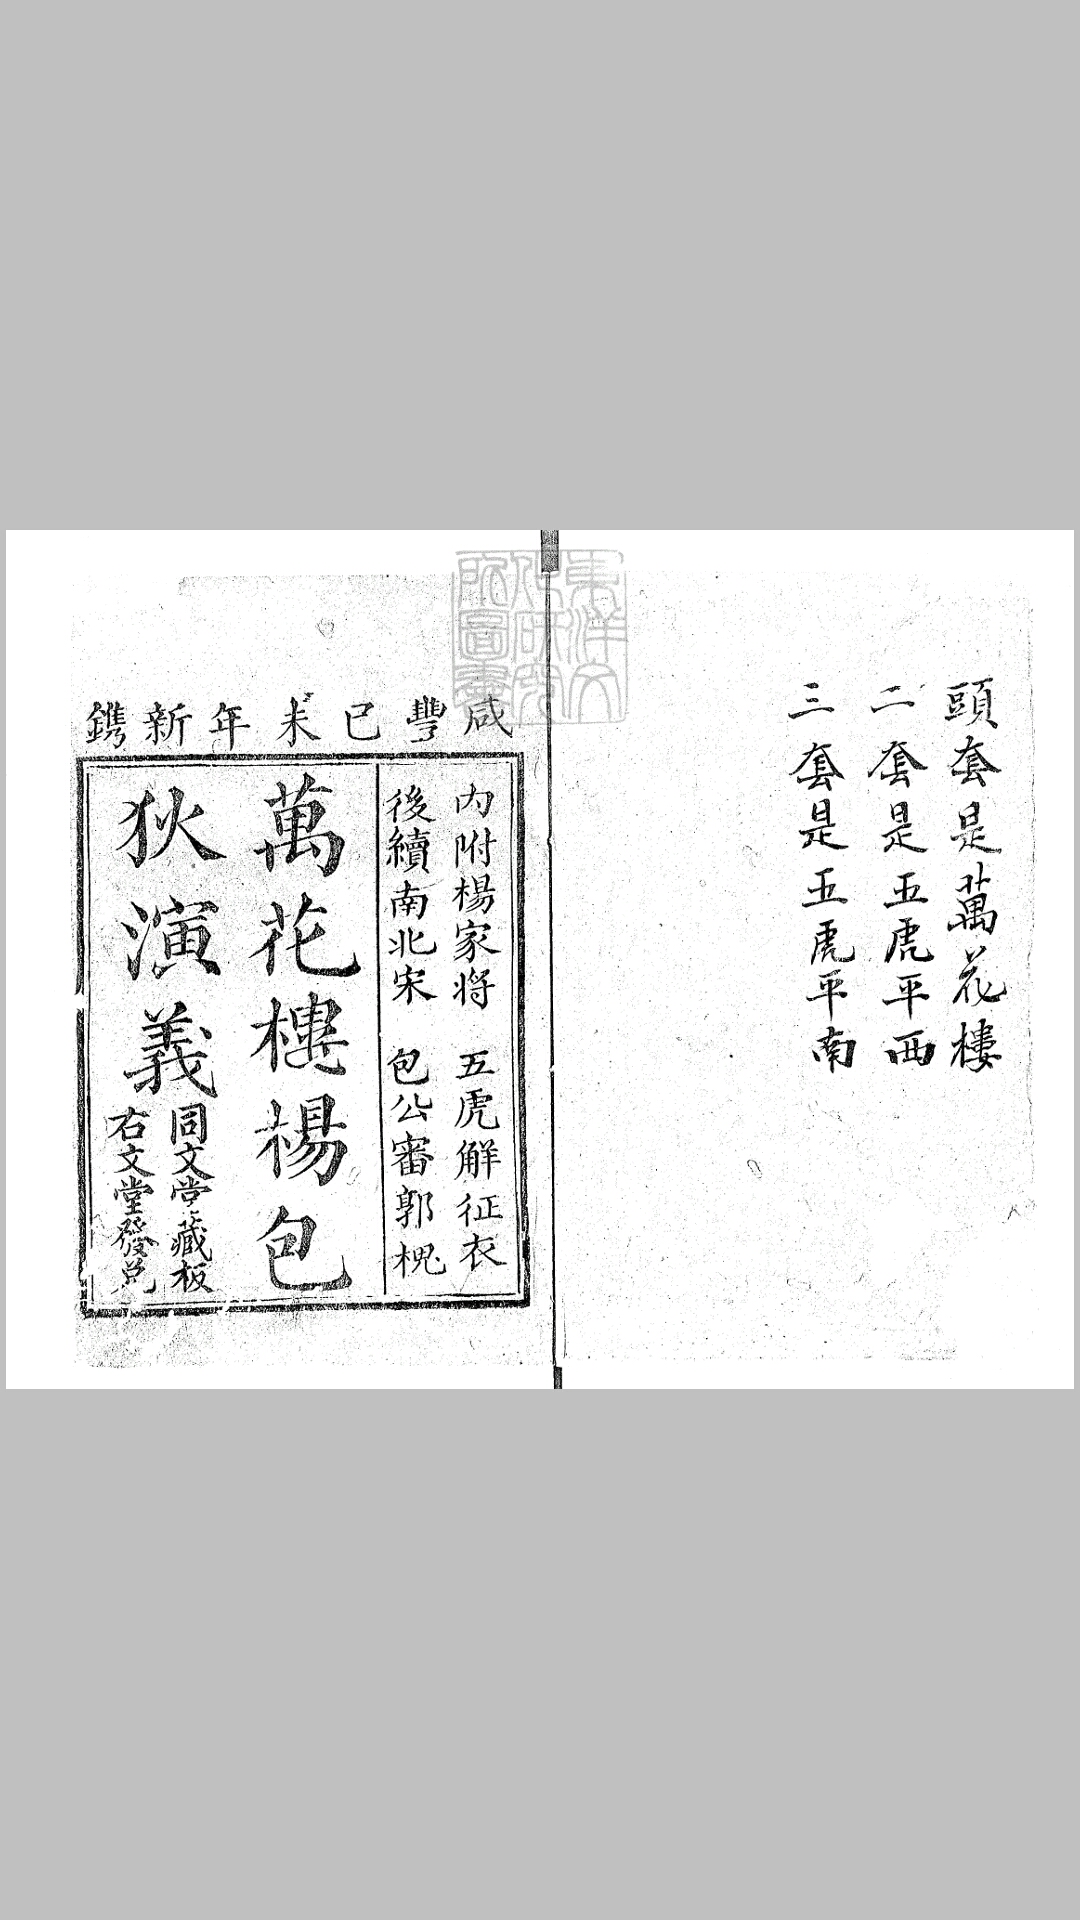 頭套是萬花樓
二套是五虎平西
三套是五虎平南
東洋文
化研究
所圖書
咸豐己未年新鐫
內附楊家將 五虎解征衣
後續南北宋 包公審郭槐
萬花樓楊包
狄演義
同文堂藏板
右文堂發兌